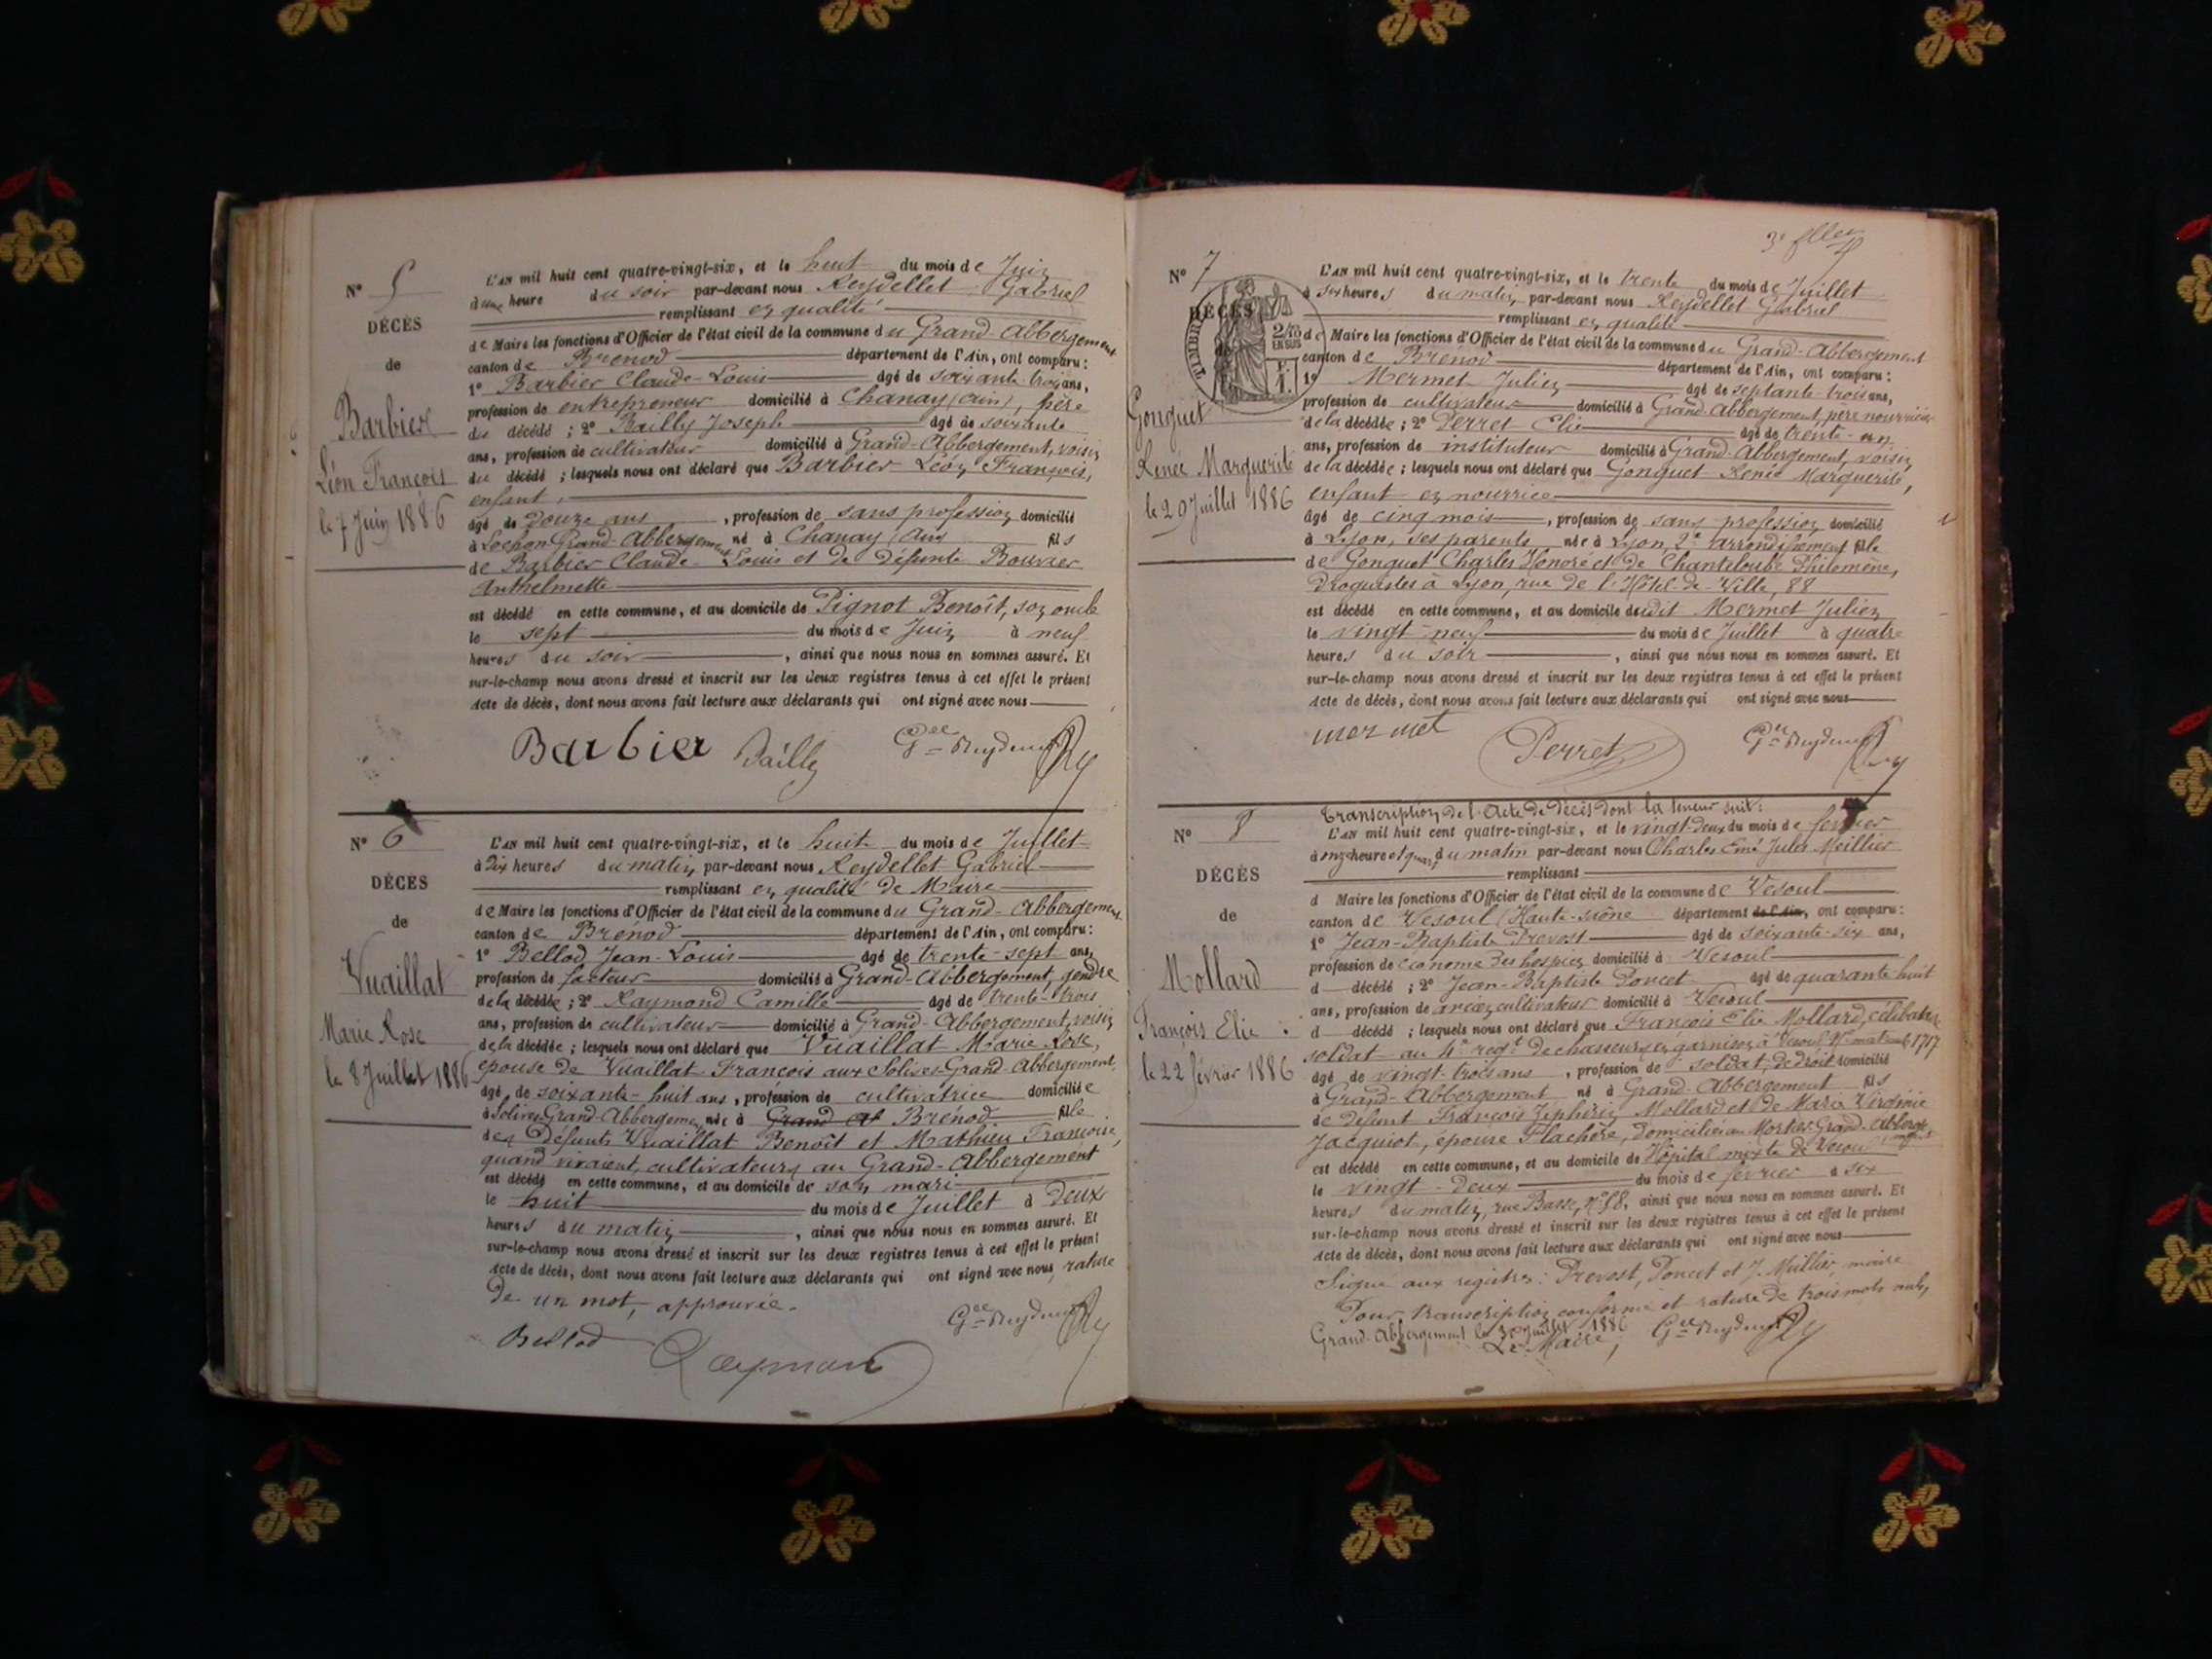 N° 5
DÉCÈS
de
Barbier
Léon François
le 7 Juin 1886
L'AN mil huit cent quatre-vingt-six, et le huit du mois de Juin
à une heure du soir par-devant nous Reydellet Gabriel
remplissant en qualité
de Maire les fonctions d'Officier de l'état civil de la commune du Grand-Abbergement
canton de Brenod département de l'Ain, ont comparu:
1° Barbier Claude-Louis âgé de soixante-trois ans,
profession de entrepreneur domicilié à Chanay (Ain), père
du décédé; 2° Bailly Joseph âgé de soixante
ans, profession de cultivateur domicilié à Grand-Abbergement, voisin
du décédé; lesquels nous ont déclaré que Barbier Léon François,
enfant,
âgé de douze ans, profession de sans profession domicilié
à Lochon Grand-Abbergement né à Chanay (Ain fils
de Barbier Claude-Louis et de défunte Bouvier
Anthelmette
est décédé en cette commune, et au domicile de Pignot Benoît, son oncle
le sept du mois de Juin à neuf
heures du soir, ainsi que nous nous en sommes assuré. Et
sur-le-champ nous avons dressé et inscrit sur les deux registres tenus à cet effet le présent
Acte de décès, dont nous avons fait lecture aux déclarants qui ont signé avec nous
Barbier Bailly Gel Reydellet
N° 6
DÉCÈS
de
Vuaillat
Marie Rose
le 8 Juillet 1886
L'AN mil huit cent quatre-vingt-six, et le huit du mois de Juillet
à dix heures du matin, par-devant nous Reydellet Gabriel
remplissant en qualité de Maire
de Maire les fonctions d'Officier de l'état civil de la commune du Grand-Abbergement
canton de Brenod département de l'Ain, ont comparu:
1° Bellod Jean-Louis âgé de trente-sept ans,
profession de facteur domicilié à Grand-Abbergement, gendre
de la décédée; 2° Raymond Camille âgé de trente-trois
ans, profession de cultivateur domicilié à Grand-Abbergement, voisin
de la décédée; lesquels nous ont déclaré que Vuaillat Marie Rose,
épouse de Vuaillat François aux Solives-Grand-Abbergement,
âgée de soixante-huit ans, profession de cultivatrice domiciliée
à Solives Grand-Abbergement, née à Grand At Brénod fille
des défunts Vuaillat Benoît et Mathieu Françoise,
quand vivaient, cultivateurs au Grand-Abbergement
est décédé en cette commune, et au domicile de son mari
le huit du mois de Juillet à deux
heures du matin, ainsi que nous nous en sommes assuré. Et
sur-le-champ nous avons dressé et inscrit sur les deux registres tenus à cet effet le présent
Acte de décès, dont nous avons fait lecture aux déclarants qui ont signé avec nous, rature
de un mot, approuvée.
Bellod Raymond Gel Reydellet
3e flet
N° 7
DÉCÈS
de
TIMBRE
2/10 EN SUS
Gonguet
Renée Marguerite
le 29 Juillet 1886
L'AN mil huit cent quatre-vingt-six, et le trente du mois de Juillet
à six heures du matin, par-devant nous Reydellet Gabriel
remplissant en qualité
de Maire les fonctions d'Officier de l'état civil de la commune du Grand-Abbergement
canton de Brenod département de l'Ain, ont comparu:
1° Mermet Julien âgé de septante-trois ans,
profession de cultivateur domicilié à Grand-Abbergement, père nourricier
de la décédée; 2° Perret Elie âgé de trente-un
ans, profession de instituteur domicilié à Grand-Abbergement, voisin
de la décédée; lesquels nous ont déclaré que Gonguet Renée Marguerite,
enfant en nourrice
âgé de cinq mois, profession de sans profession domicilié
à Lyon, ses parents née à Lyon, 2e arrondissement fille
de Gonguet Charles Honoré et de Chanteloube Philomène,
droguistes à Lyon, rue de l'Hôtel-de-Ville, 88
est décédé en cette commune, et au domicile dudit Mermet Julien
le vingt-neuf du mois de Juillet à quatre
heures du soir, ainsi que nous nous en sommes assuré. Et
sur-le-champ nous avons dressé et inscrit sur les deux registres tenus à cet effet le présent
Acte de décès, dont nous avons fait lecture aux déclarants qui ont signé avec nous
mermet Perret Gel Reydellet
Transcription de l'Acte de décès dont la teneur suit:
N° 8
DÉCÈS
de
Mollard
François Elie
le 22 février 1886
L'AN mil huit cent quatre-vingt-six, et le vingt-deux du mois de février
à onze heure et quart du matin par-devant nous Charles Jules Meillier
remplissant
d Maire les fonctions d'Officier de l'état civil de la commune de Vesoul
canton de Vesoul (Haute-Saône département de l'Ain, ont comparu:
1° Jean-Baptiste Prevost âgé de soixante-six ans,
profession de économe des hospices domicilié à Vesoul
d décédé; 2° Jean-Baptiste Poncet âgé de quarante huit
ans, profession de ancien cultivateur domicilié à Vesoul
d décédé; lesquels nous ont déclaré que François Elie Mollard, célibataire
soldat au 4e regt de chasseurs en garnison à Vesoul No matricule 1717
âgé de vingt-trois ans, profession de soldat, de droit domicilié
à Grand-Abbergement né à Grand-Abbergement fils
de défunt François Zéphirin Mollard et de Marie Virginie
Jacquiot, épouse Flachère, domiciliée au Mortier Grand-Abbergement
est décédé en cette commune, et au domicile de Hôpital mixte de Vesoul
le vingt-deux du mois de février à six
heures du matin, rue Basse, N° 58, ainsi que nous nous en sommes assuré. Et
sur-le-champ nous avons dressé et inscrit sur les deux registres tenus à cet effet le présent
Acte de décès, dont nous avons fait lecture aux déclarants qui ont signé avec nous
Signé aux registres: Prevost, Poncet et J. Meillier, maire
Pour transcription conforme et rature de trois mots nuls,
Grand-Abbergement le 30 juillet 1886
Le Maire, Gel Reydellet